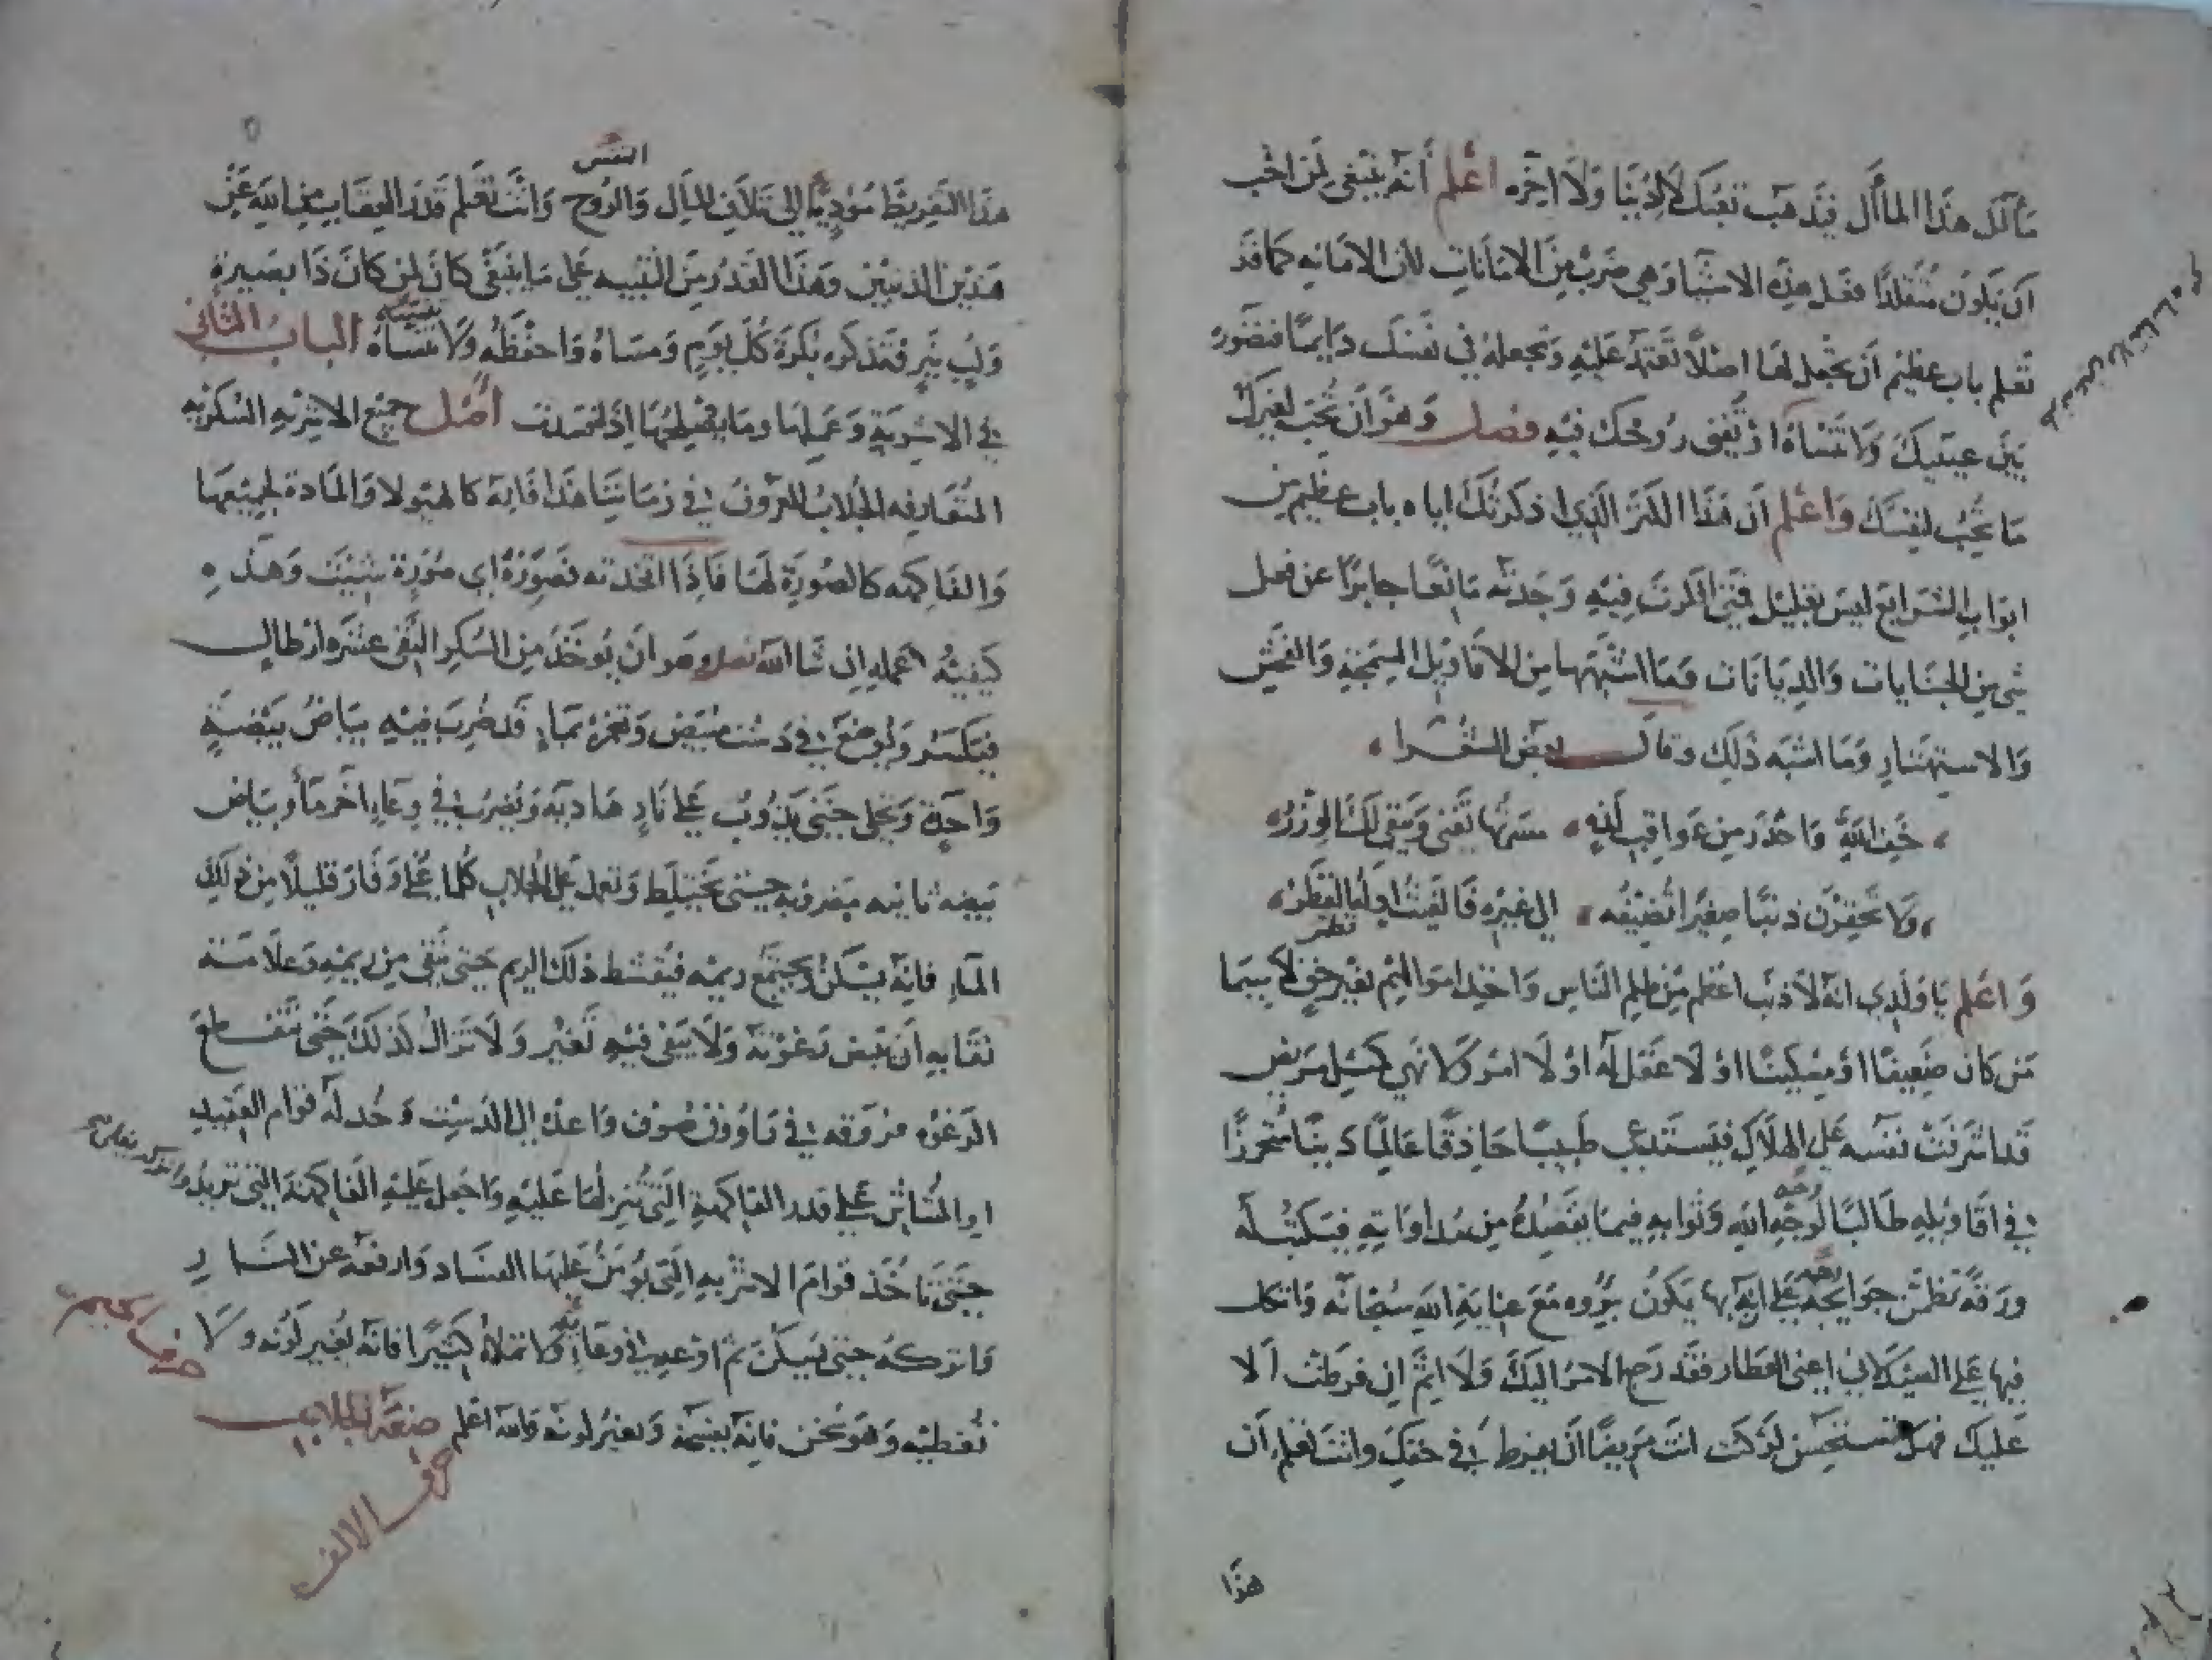 مآلك هذا المآل فتذهب نفسك لا لدنيا ولا اخره اعلم أنه ينبغي لمن احب
ان يكون متقلدًا فعل هذه الاشيا وهي ضرب من الامانات لان الامانه كما قد
تعلم باب عظيم ان تجعل لها اصلًا تعتمد عليه وتجعله في نفسك دايمًا فتصور
بين عينيك ولا تنساه او تنفق روحك فيه فصل وهو ان تحب لغيرك
ما تحب لنفسك واعلم ان هذا الكنز الذي ذكرته لك اياه باب عظيم من
ابواب الشرايع ليس بقليل فمتى افكرت فيه وجدته مانعًا حاجزًا عن فعل
شي من الجنايات والديانات وما اشبهها من الاقاويل السمجة والفحش
والاستهتار وما اشبه ذلك وقال بعض الشعرا
خف الله واحذر من عواقب لذةٍ سرتها تفنى ويبقى لك الوزر
ولا تحقرن ذنبًا صغيرًا تضيفه الى غيره فالغيث اوله القطر
قطر
واعلم يا ولدي انه لا ذنب اعظم من ظلم الناس واخذ اموالهم بغير حق لا سيما
من كان ضعيفًا او مسكينًا او لا عقل له او لا امر ولا نهي كمثل مريض
قد اشرفت نفسه على الهلاك فيستدعي طبيبًا حاذقًا عالمًا دينًا متحرزًا
في اقاويله طالبًا لوجه الله وثوابه فيما يقصده من مداواته فيكتب له
ورقة تظمن حوايجه على انه بها يكون بروه مع عناية الله سبحانه واتكل
فيها على الصيدلاني اعني العطار فقد رجع الامر اليك ولا اثم ان فرطت الا
عليك فهل تستحسن لو كنت انت مريضًا ان يفرط في حقك وانت تعلم ان
هذا
النفس
هذا التفريط موديًا الى تلاف المال والروح وانت تعلم قدر العقاب من الله عن
هذين الذنبين وهذا القدر من التنبيه على ما ينبغي كان لمن كان ذا بصيرة
ولب نير فتذكره بكرة كل يوم ومساه واحفظه ولا تنساه الباب الثاني
في الاشربة وعملها وما يصلحها اذا فسدت اصل جميع الاشربه السكريه
المتعارفه الجلاب المعروف في زماننا هذا فانه كالهيولا والمادة لجميعها
والفاكهه كالصورة لها فاذا اتخذته فصوره اي صورة شيت وهذه
كيفية عمله ان شا الله تعالى وهو ان يوخذ من السكر النقي عشره ارطال
فيكسر ويوضع في دست مبيض وتغمره بماءٍ قد ضرب فيه بياض بيضة
واحدة ويخلى حتى يذوب على نار هاديه ويضرب في وعاء اخر ماء وبياض
بيضه ثانيه مضروبه حتى تختلط وتعمل على الجلاب كلما غلا وفار قليلًا من ذلك
الماء فانه يسكن ويجتمع ريمه فيقشط ذلك الريم حتى تنقى من ريمه وعلامة
نقايه ان تبيض رغوته ولا يبقى فيه تغير ولا تزال كذلك حتى تنقطع
الرغوة فروقه في راووق صوف واعده الى الدست وخذ له قوام العقيد
او المتاثر على قدر الفاكهة التي تثيرها عليه واجعل عليه الفاكهة التي تريد
حتى تاخذ قوام الاشربه التي يومن عليها الفساد وارفعه عن النار
واتركه حتى يسكن ثم اوعيه في وعايه ولا تملاه كثيرًا فانه يغير لونه ولا
تغطيه وهو سخن فانه يفسده ويغير لونه والله اعلم صنعة الجلاب
حرف الجيم
حرف الالف